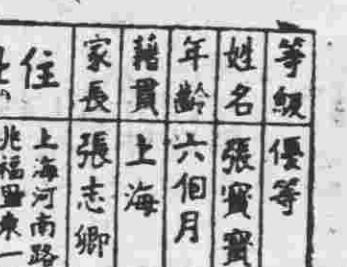 等級 優等
姓名 張寶寶
年齡 六個月
藉貫 上海
家長 張志卿
住
上海河南路
兆福里東一